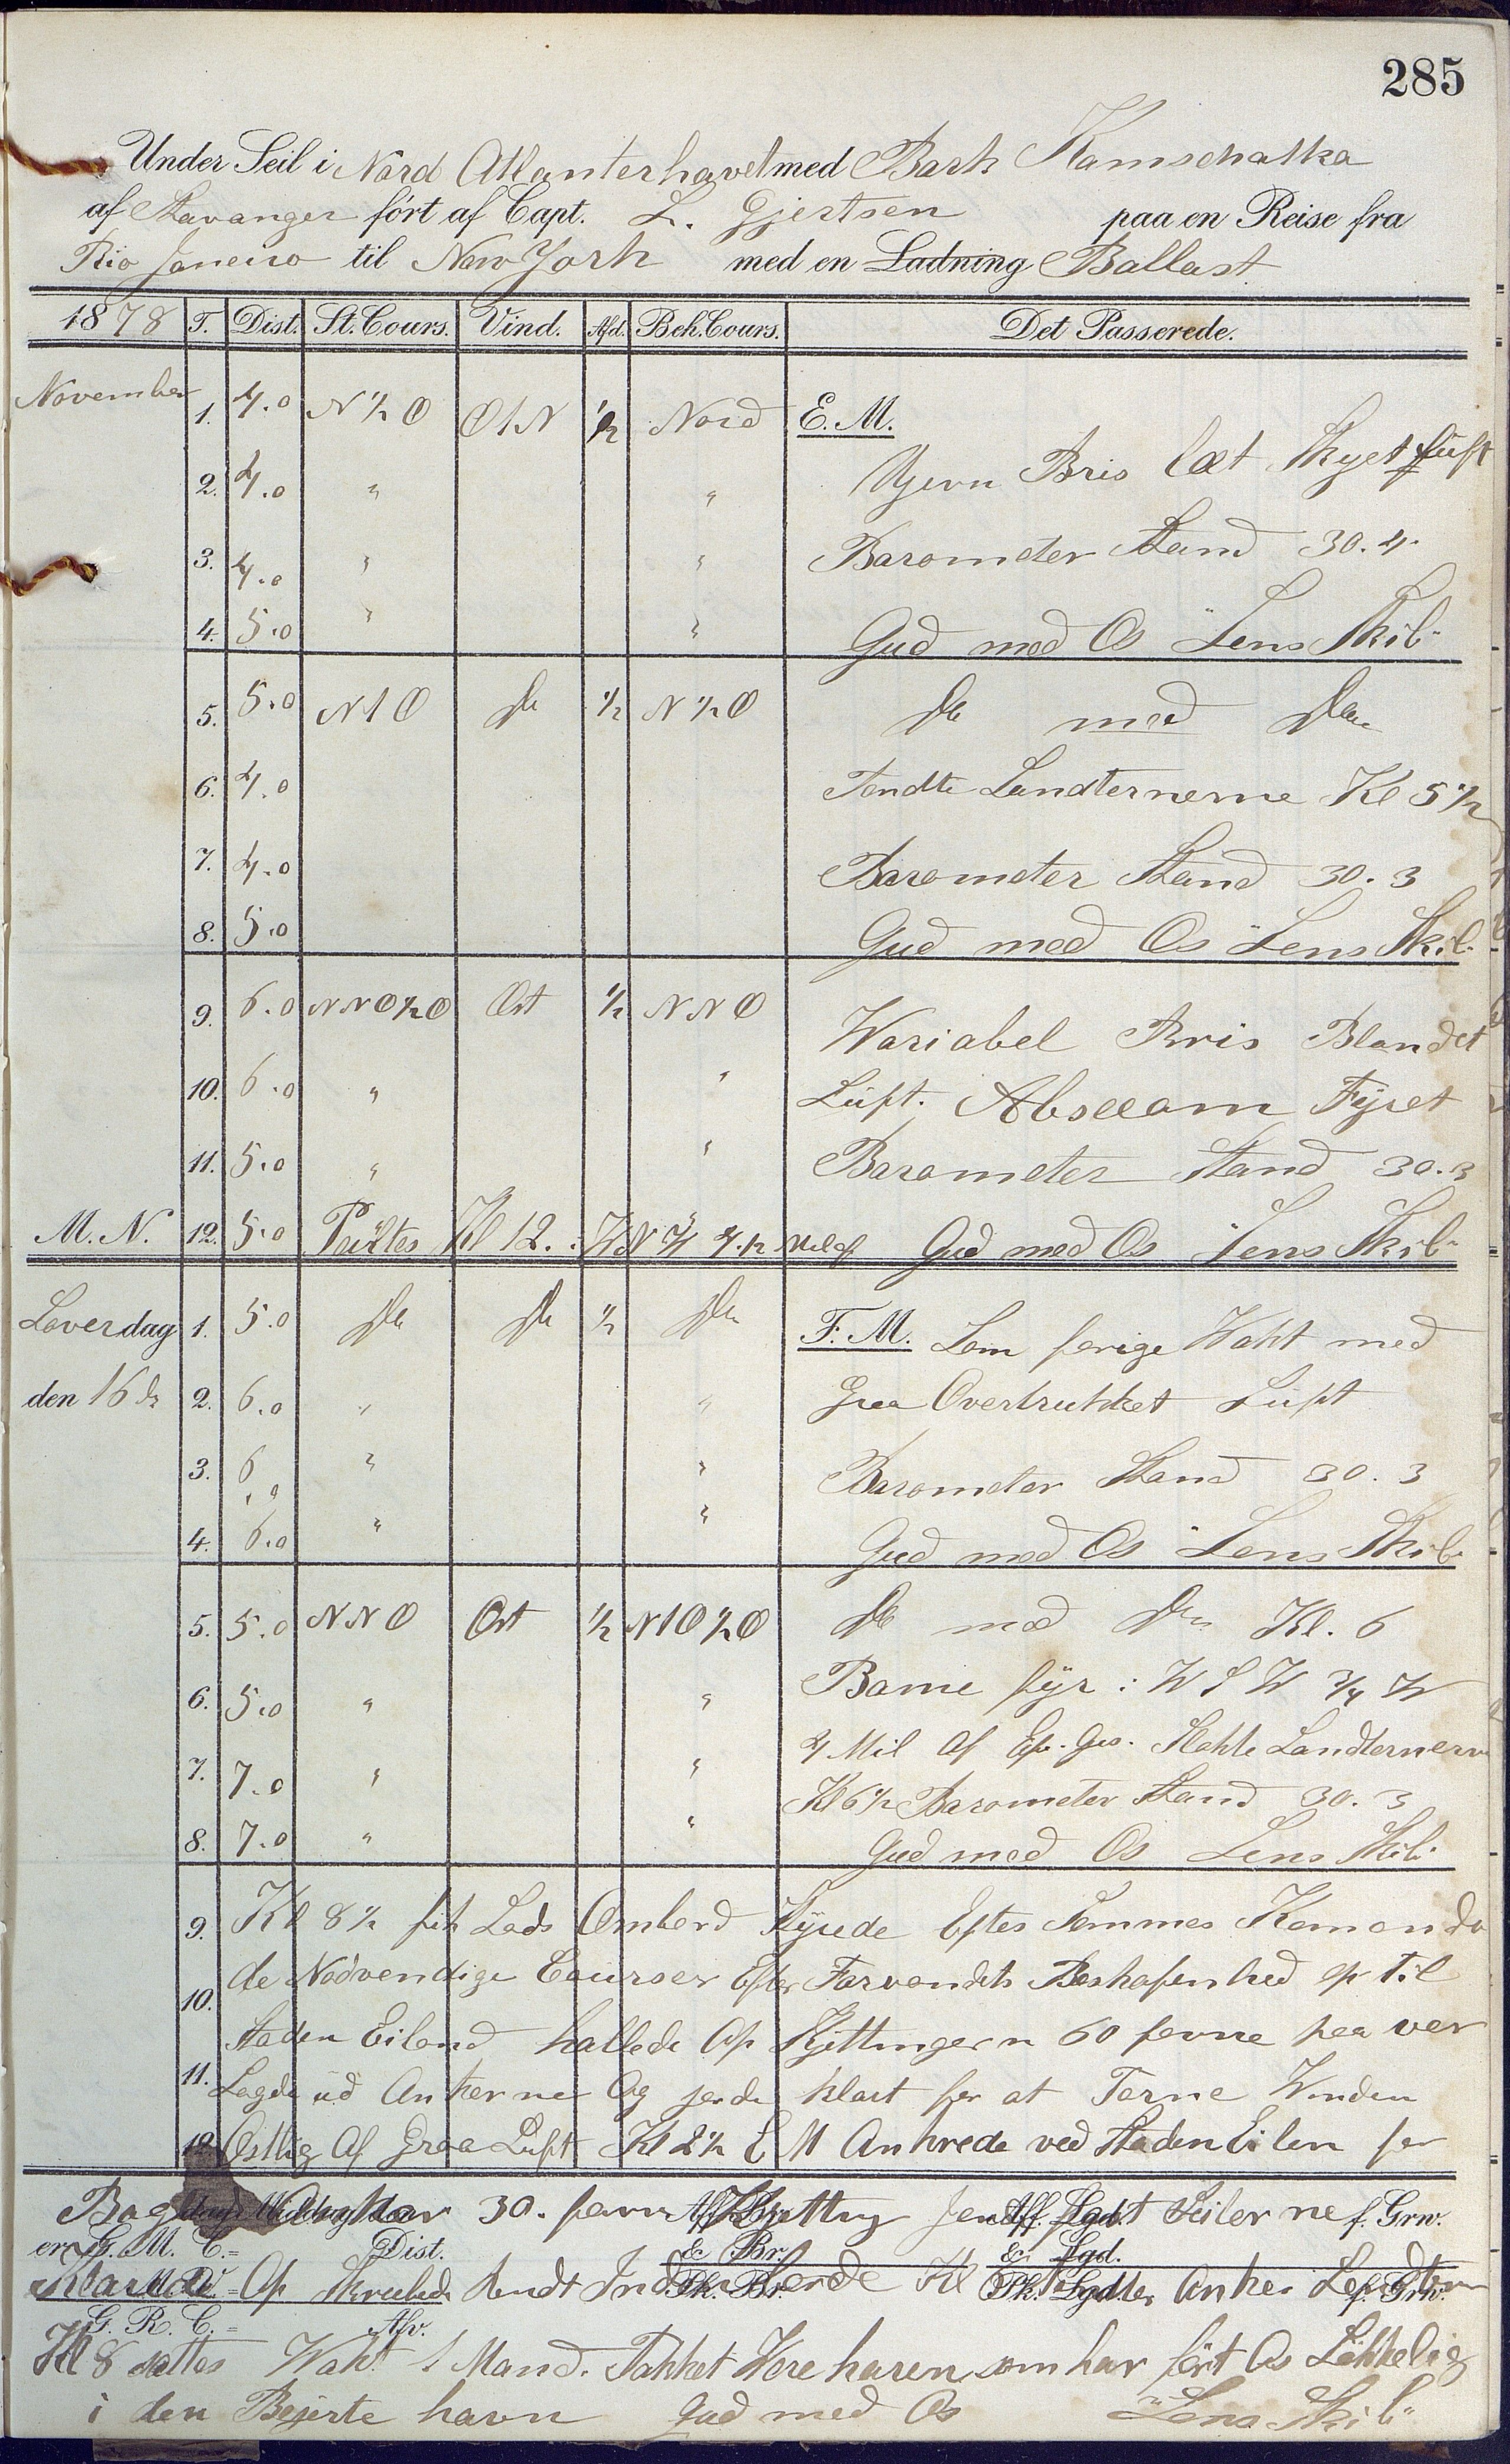 285
Under Seil i Nord Atlanterhavet med Bark Kamschatka
af Stavanger fört af Capt. L. Gjertsen paa en Reise fra
Rio Janeiro til New York med en Ladning Ballast
1878 T. Dist. St. Cours. Vind. Afd. Beh. Cours. Det Passerede.
November 1. 4.0 N ½ O O 1 N ½ Nord E. M.
2. 4.0 " " Bris læt Skyet Luft
3. 4.0 " " Barometer Stand 30.4
4. 5.0 " " Gud med Os "Lens Skib"
5. 5.0 N 1 O Do ½ N ½ O Do med Do
6. 4.0 Tendte Landternerne Kl 5 ½
7. 4.0 Barometer Stand 30.3
8. 5.0 Gud med Os "Lens Skib"
9. 6.0 N N O ½ O Ost ½ N N O Wariabel Bris Blandet
10. 6.0 " " Luft. Abseeom Fyret
11. 5.0 " " Barometer Stand 30.3
M. N. 12. 5.0 Peiltes Kl 12. Gud med Os "Lens Skib"
Loverdag 1. 5.0 Do Do ½ Do F. M. Som forige Wakt med
den 16 de 2. 6.0 " " Graa Overtrukket Luft
3. 6.0 " " Barometer Stand 30.3
4. 6.0 " " Gud med Os "Lens Skib"
5. 5.0 N N O Ost ½ N 1 O ½ O Do med Do Kl. 6
6. 5.0 " " fyr i W S W ¾ W
7. 7.0 " " 4 Mil Af Slokte Landternerne
Kl 6 ½ Barometer Stand 30.3
8. 7.0 " " Gud med Os Lens Skib"
9. Kl 8 ½ fik Lods Ombord Styrede Efter Semmes Komando
10. de Nödvendige Courser Efter Farvandets Beskafenhed op til
Staden Eiland hallede Op Kjettingern 60 favne paa ver
11. Lagde ud Ankerne Og jorde klart for at Torne Winden
12. Ostlig Af Graa Luft Kl 2 ½ E M Ankrede ved Staden Eilen for
Bag 30. favne Kjetting fast Seilerne f. Grw.
G. M. C. = Dist. & Br. & Lgd.
Op Pk. Br. Pk. Lgd. Anker f. Grw.
G. R. C. = Afv.
Kl 8 sattes Wakt 1 Mand. Takket Wore haren som har fört Os Lökkelig
i den Bejerte havn Gud med Os "Lens Skib"